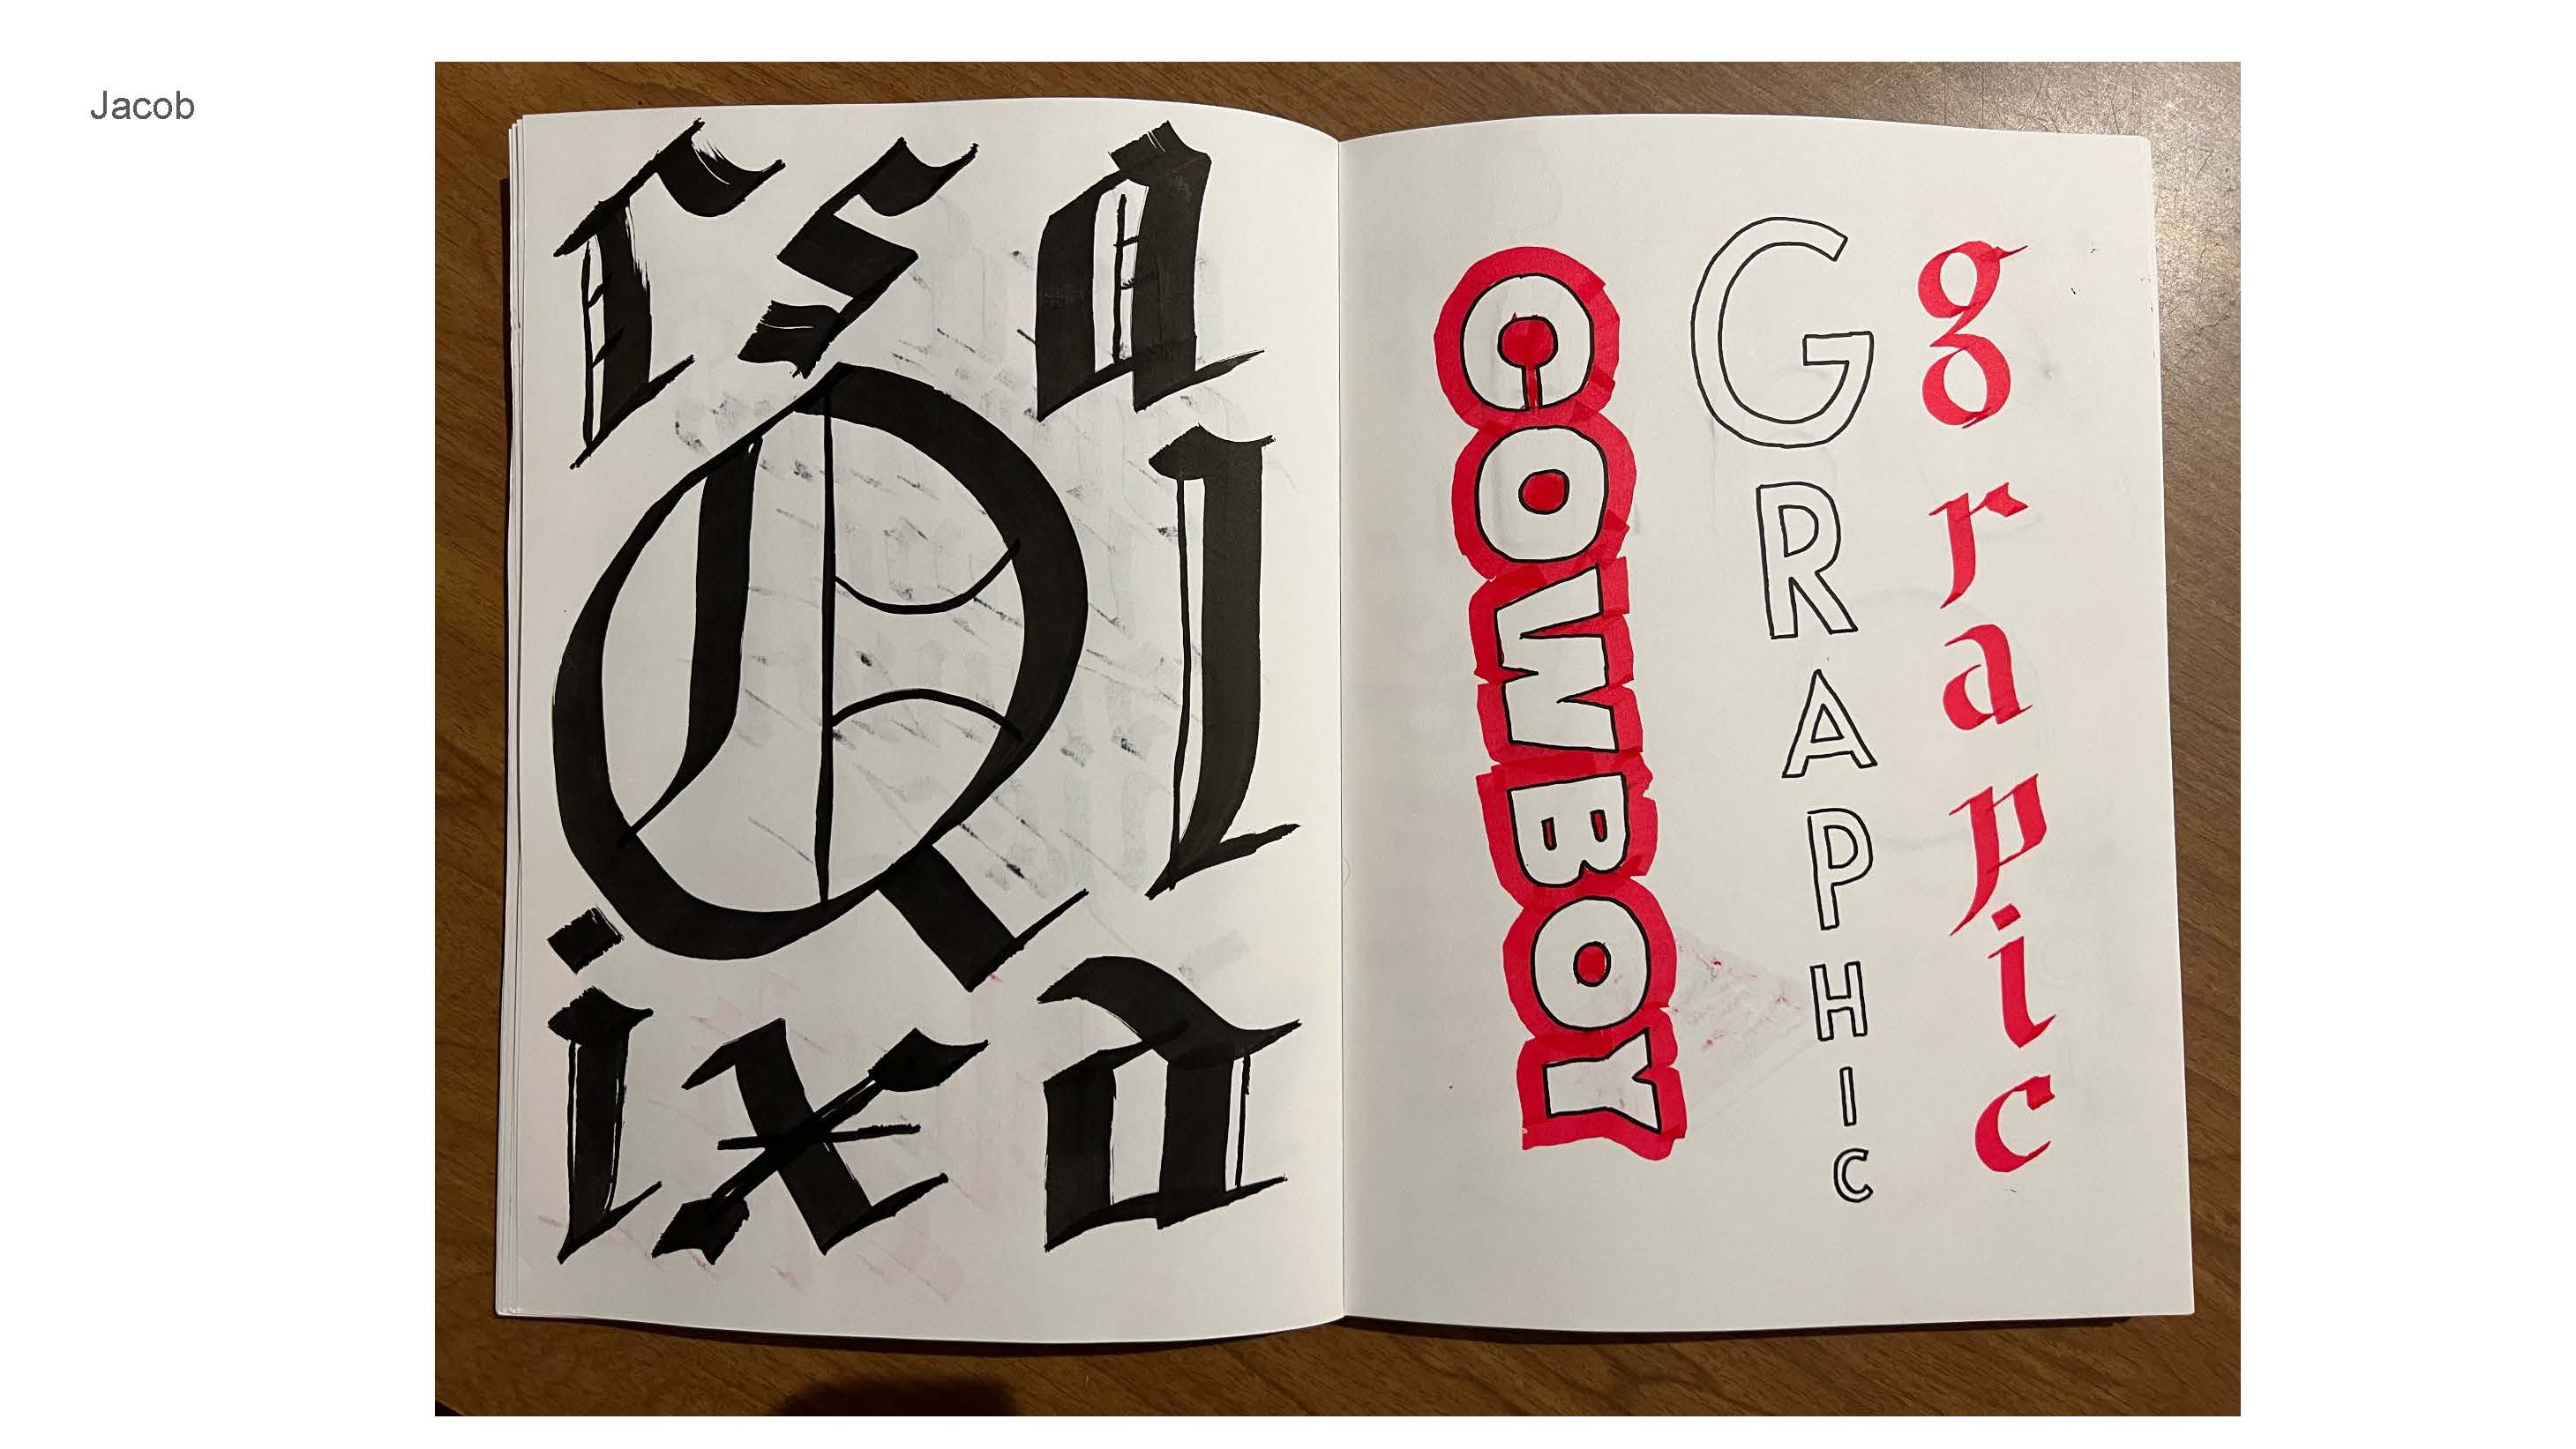 Jacob
r s a
Q l
i x a
COWBOY
GRAPHIC
grapic